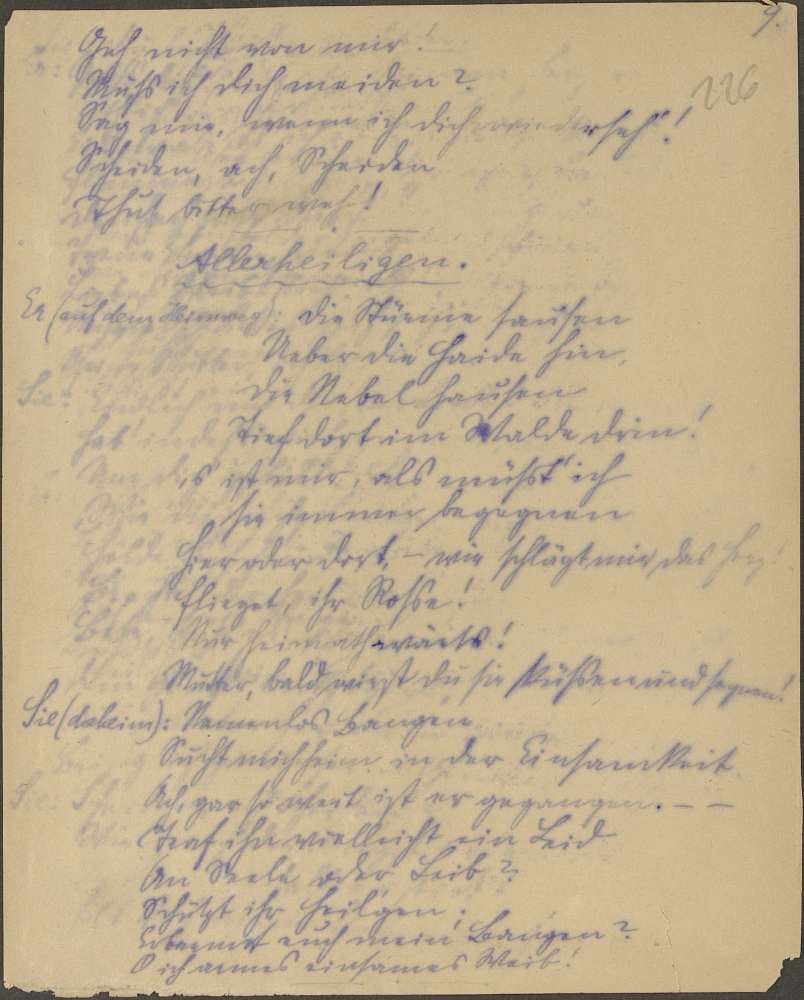 9.
226
Geh nicht von mir!
Muß ich dich meiden?
Sag mir, wann ich dich wiederseh'!
Scheiden, ach, Scheiden
Thut bitter weh!
Allerheiligen.
Er (auf dem Heimweg): Die Stürme sausen
Ueber die Haide hin,
Die Nebel hausen
Tief dort im Walde drin!
's ist mir, als müßt' ich
sie immer begegnen
Hier oder dort, – wie schlägt mir das Herz!
Flieget, ihr Rosse!
Nur heimathwärts!
Mutter, bald wirst du sie küssen und segnen!
Sie (daheim): Namenlos Bangen
Sucht mich heim in der Einsamkeit
Ach, gar so weit ist er gegangen. – –
Traf ihn vielleicht ein Leid
An Seele oder Leib?
Schützt ihr Heil'gen,
Erbarmet euch mein Bangen?
O ich armes einsames Weib!